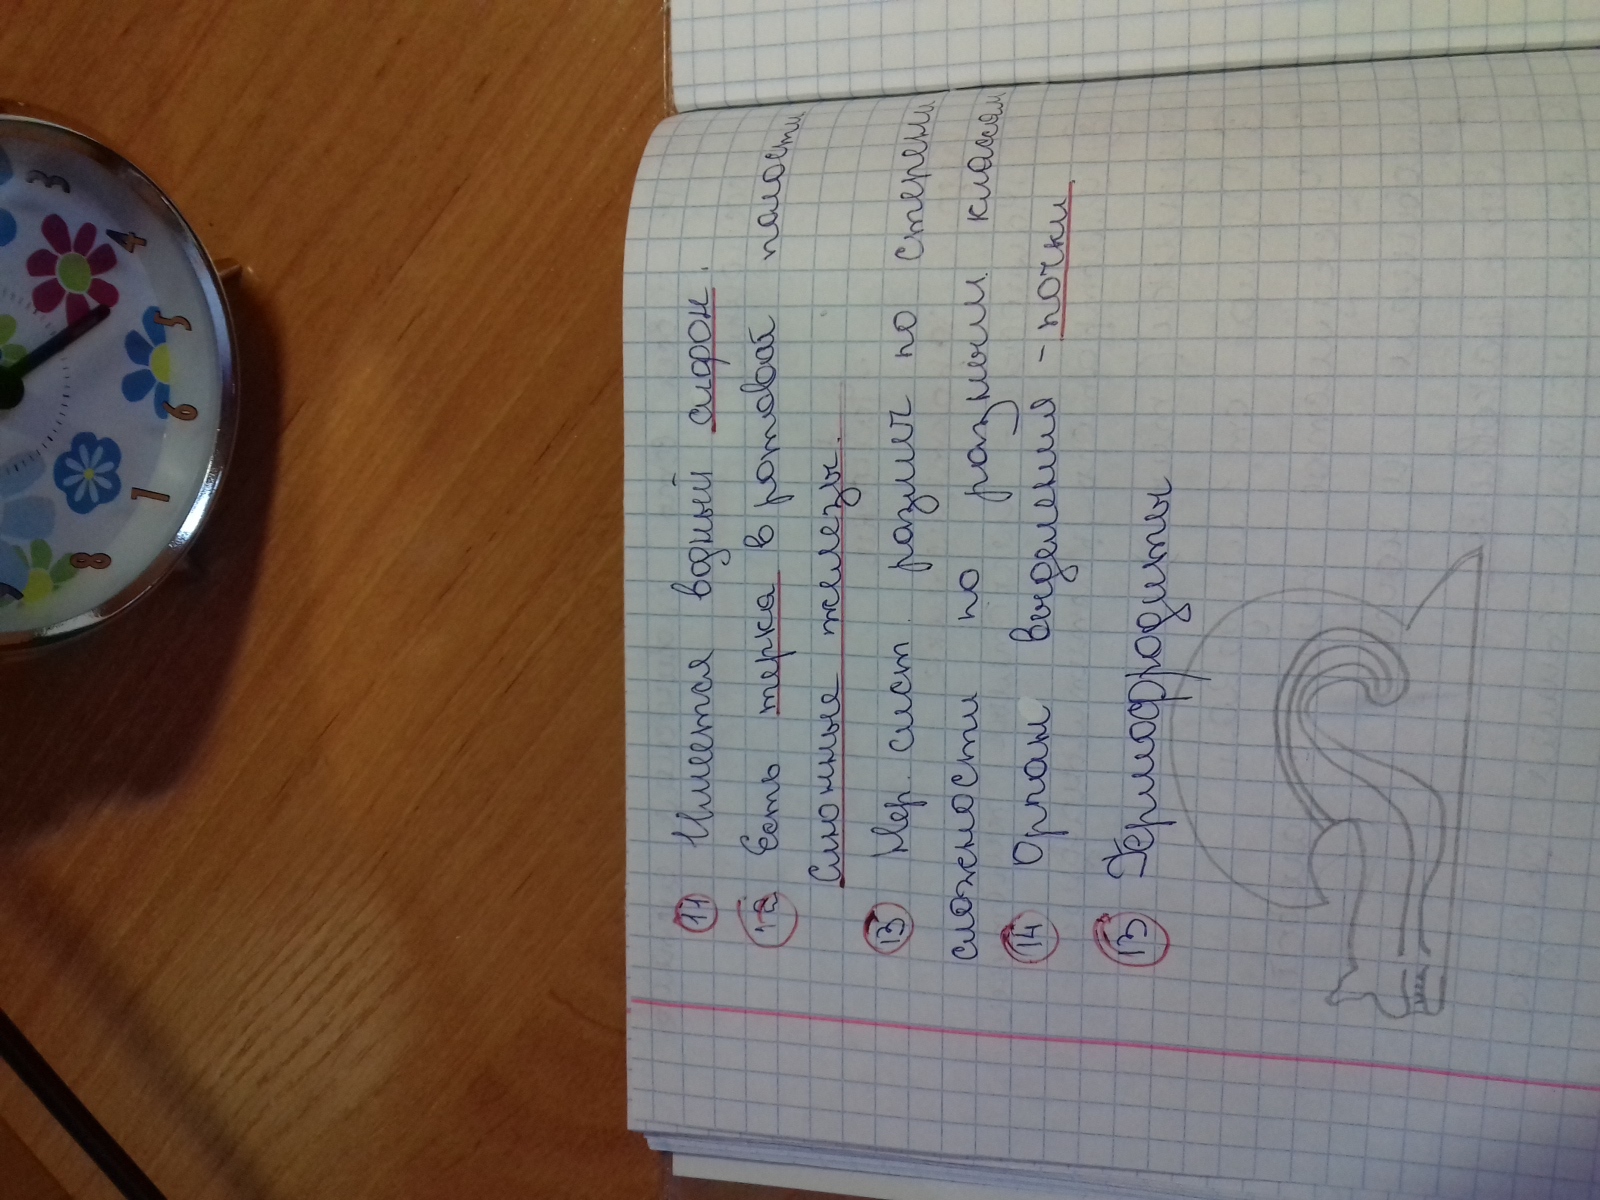 11 Имеется водный сифон.
12 Есть терка в ротовой полости
Слюнные железы.
13 Нер. сист. различ по степени
сложности по разным класам
14 Орган выделения - почки.
15 Гермафродиты
3
4
5
6
7
8